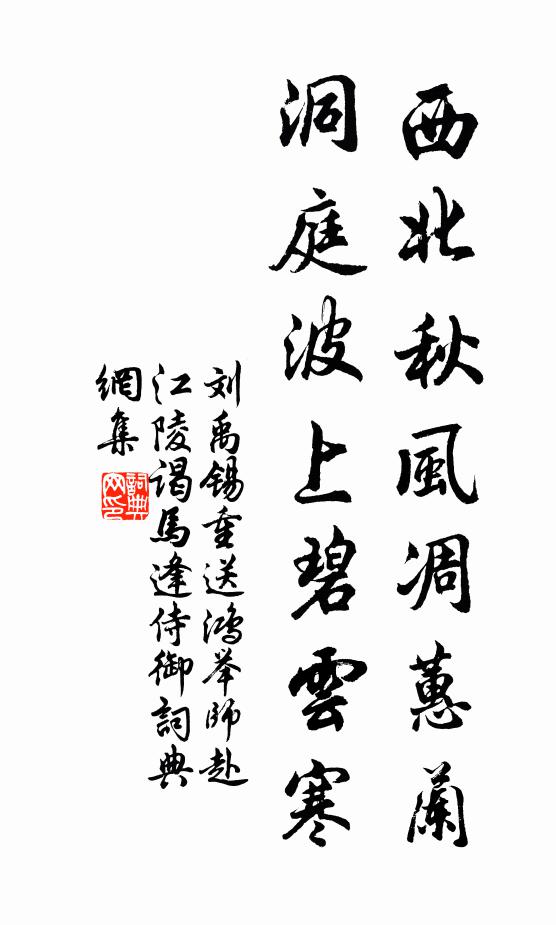 西北秋風凋蕙蘭
洞庭波上碧雲寒
刘禹锡重送鴻举師赴
江陵謁馬逢侍御詞典
網集
詞典
网印